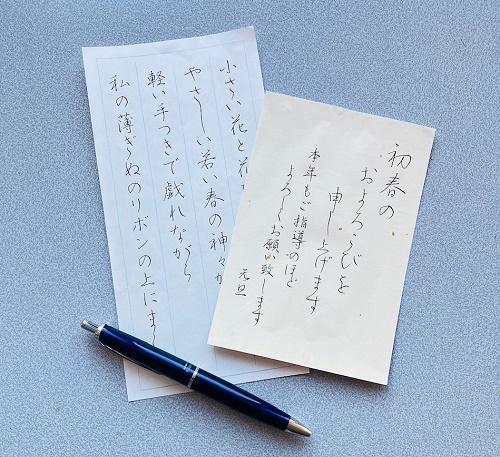 小さい花と花
やさしい若い春の神々が
軽い手つきで戯れながら
私の薄ぎぬのリボンの上にま
初春の
およろこびを
申し上げます
本年もご指導のほど
よろしくお願い致します
元旦